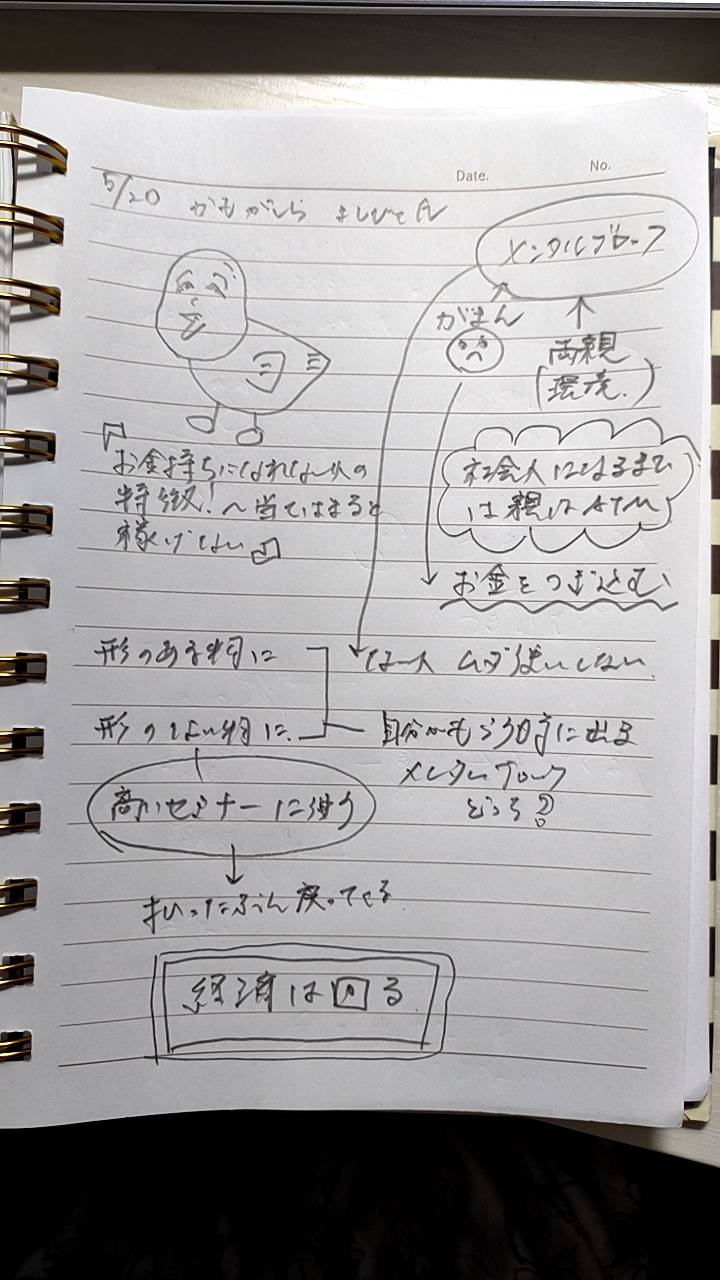 Date.
No.
5/20 かもがしら よしひと氏
メンタルブロック
がまん
両親
(環境.)
『お金持ちになれない人の
特徴!〜当てはまると
稼げない』
社会人になるまで
は親はATM
お金をつぎこむ
形のある物に
ない人 ムダ使いしない
形のない物に
自分がもらう方に出る
メンタルブロック
どっち?
高いセミナーに通う
まいったぶん戻ってくる
経済は回る